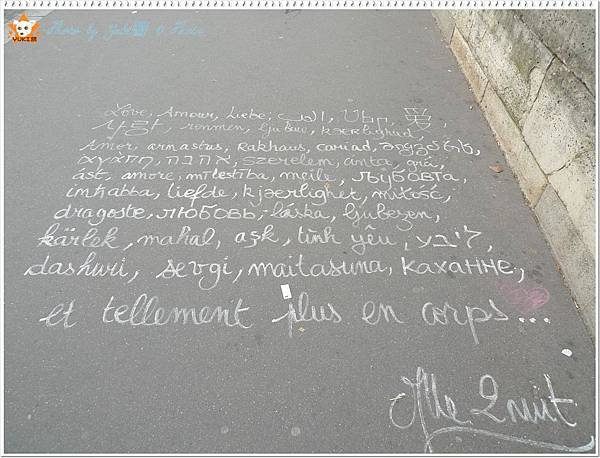 YUKI熊
Photo by Yuki熊 @ Paris
Love, Amour, Liebe, الحب, 愛,
사랑, ronmen, ljubav, kærlighed,
Amor, armastus, Rakkaus, cariad, სიყვარული,
αγάπη, אהבה, szerelem, cinta, grá,
ást, amore, mīlestība, meilė, любовта,
imħabba, liefde, kjærlighet, miłość,
dragoste, любовь, láska, ljubezen,
kärlek, mahal, aşk, tình yêu, ליבע,
dashuri, sevgi, maitasuna, каханне,
et tellement plus en corps...
Mle 2nuit